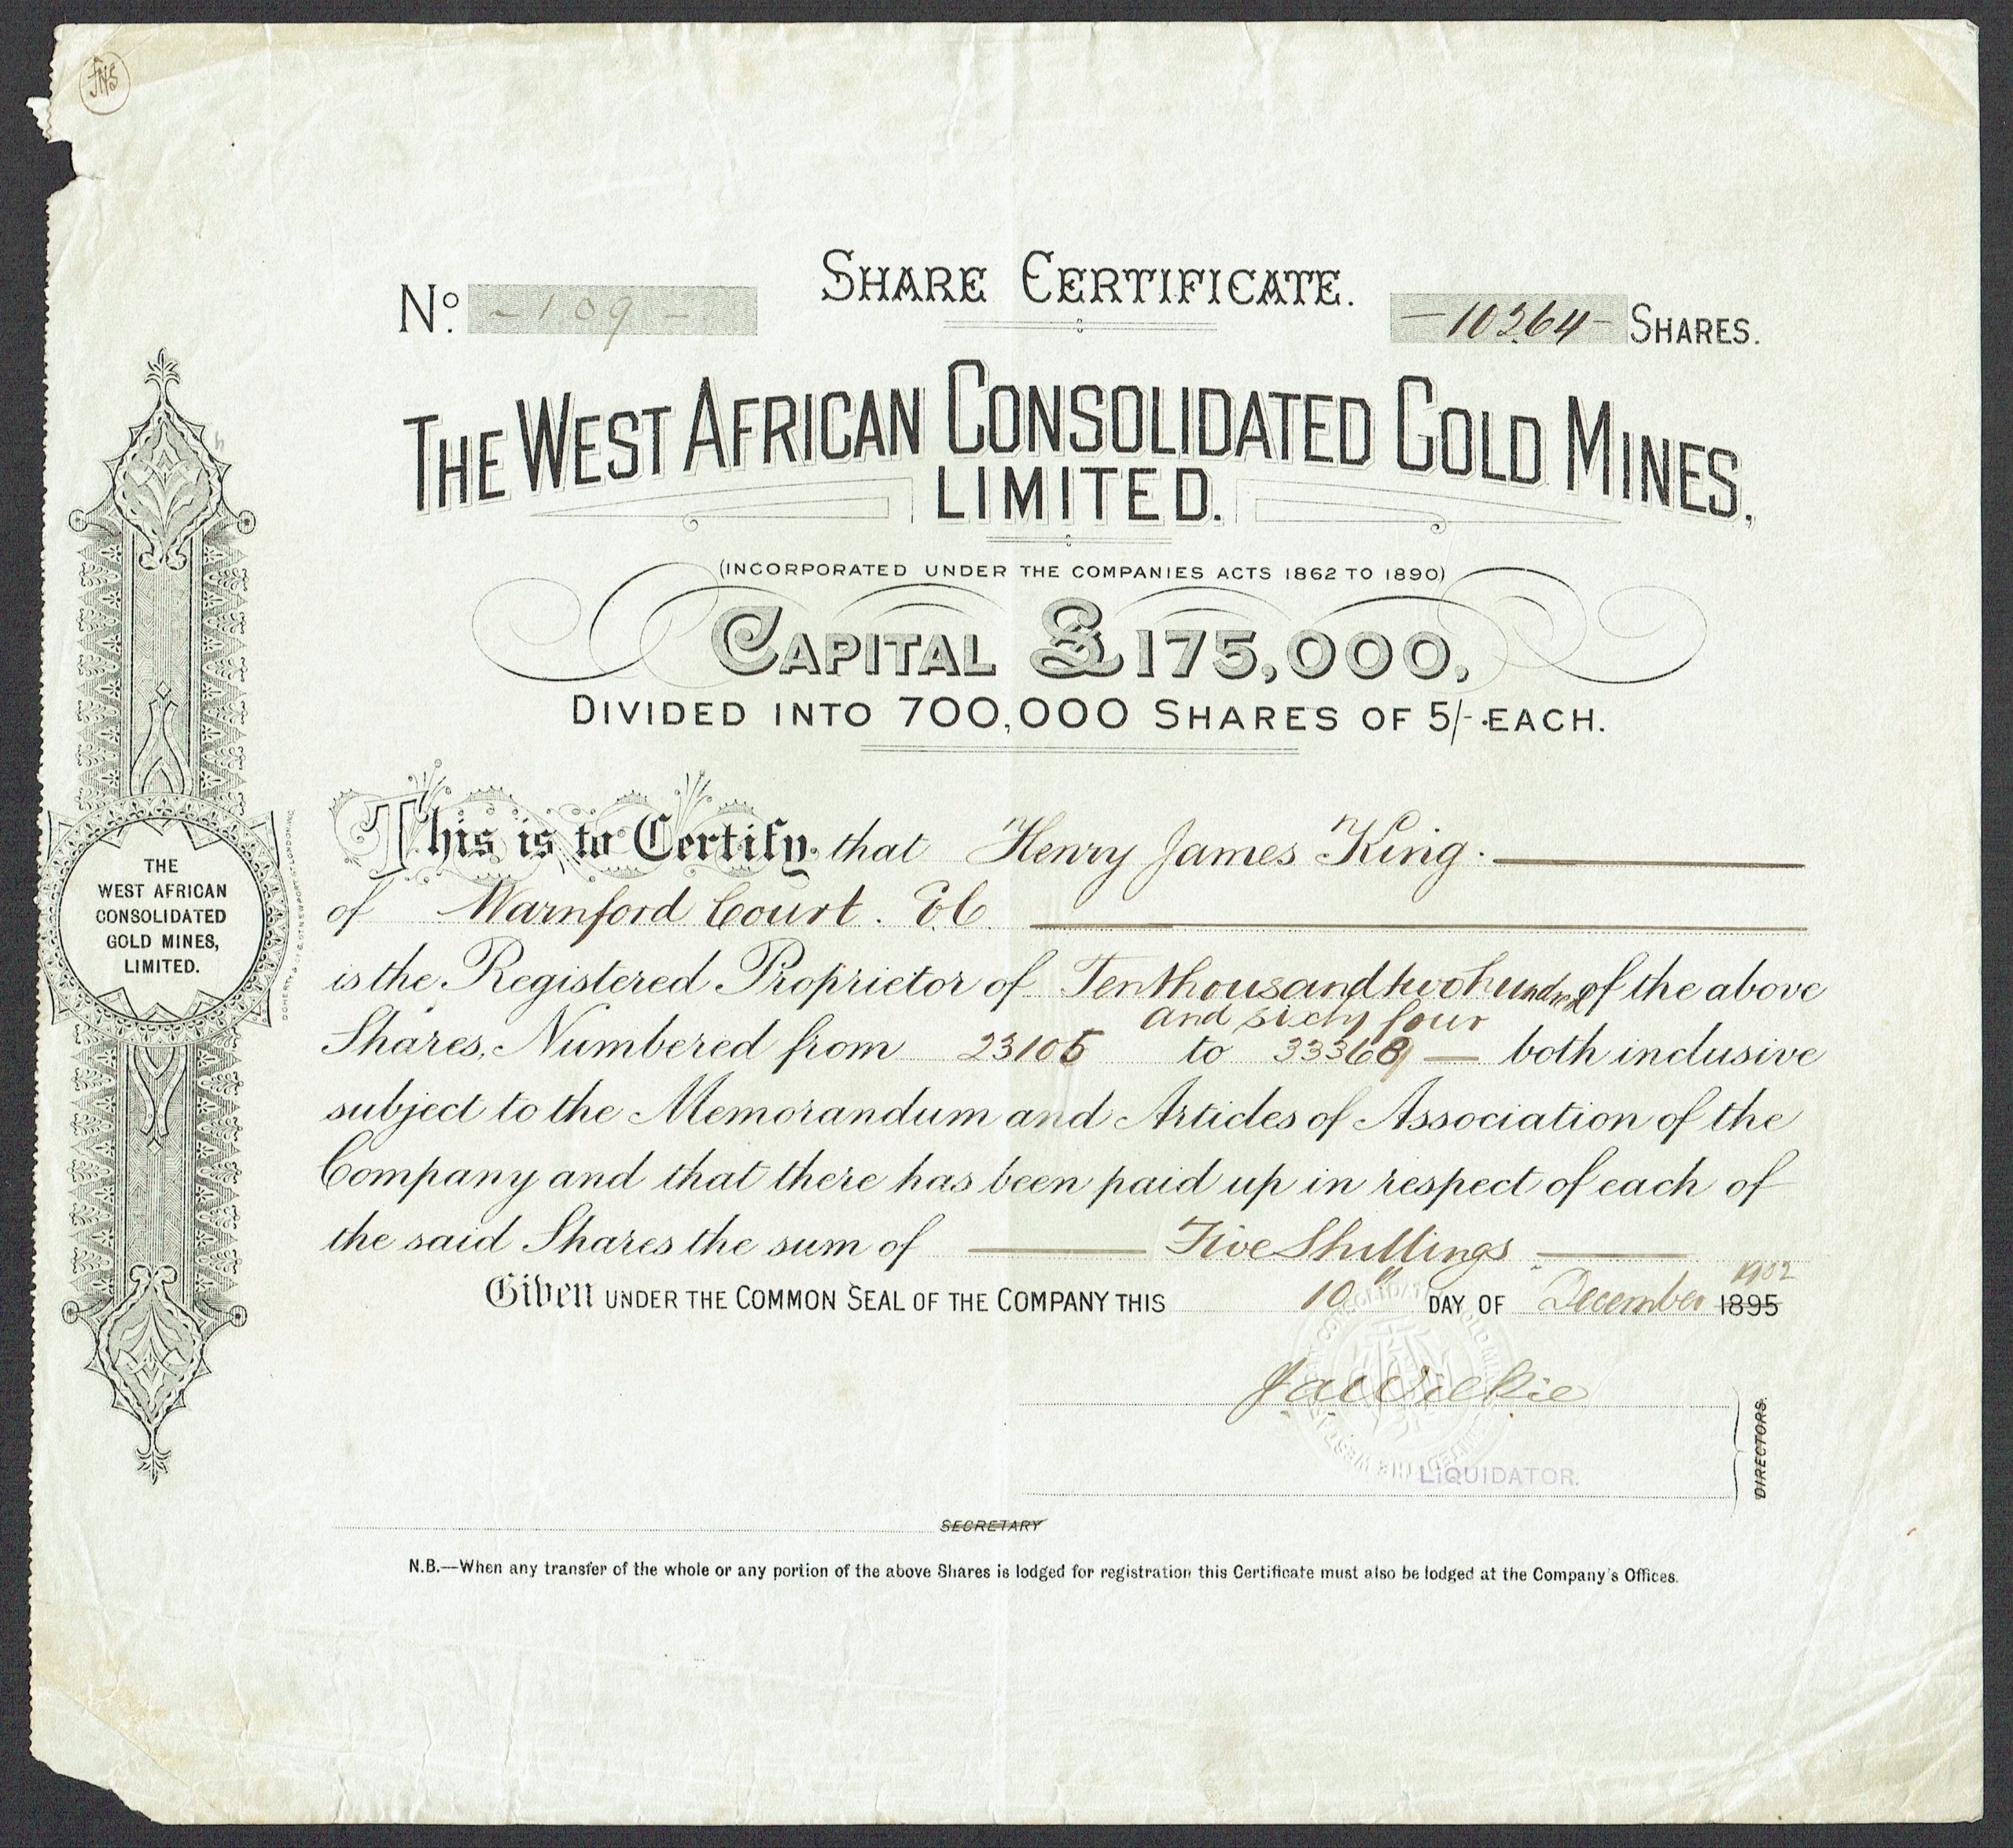 FNS
SHARE CERTIFICATE.
No. -109-
-10264- SHARES.
THE WEST AFRICAN CONSOLIDATED GOLD MINES,
LIMITED.
(INCORPORATED UNDER THE COMPANIES ACTS 1862 TO 1890)
CAPITAL £175,000,
DIVIDED INTO 700,000 SHARES OF 5/- EACH.
This is to Certify that Henry James King.
of Warnford Court. E.C.
is the Registered Proprietor of Ten thousand two hundred of the above
and sixty four
Shares, Numbered from 23105 to 33368 — both inclusive
subject to the Memorandum and Articles of Association of the
Company and that there has been paid up in respect of each of
the said Shares the sum of — Five Shillings —
1902
Given UNDER THE COMMON SEAL OF THE COMPANY THIS 10th DAY OF December 1895
LIQUIDATOR.
DIRECTORS.
SECRETARY
N.B.—When any transfer of the whole or any portion of the above Shares is lodged for registration this Certificate must also be lodged at the Company's Offices.
THE
WEST AFRICAN
CONSOLIDATED
GOLD MINES,
LIMITED.